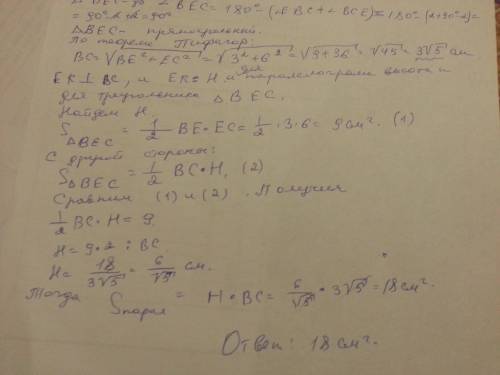 ∠BEC = 180° - (∠EBC + ∠BCE) = 180° - (α + 90° - α) =
= 90° - α + α = 90°
△BEC - прямоугольный.
По теореме Пифагор:
BC = √(BE² + EC²) = √(3² + 6²) = √(9 + 36) = √45 = 3√5 см
EK ⊥ BC, и EK = H и для параллелограмм высота и
для треугольника △BEC.
Найдем H.
S△BEC = 1/2 BE · EC = 1/2 · 3 · 6 = 9 см². (1)
С другой стороны:
S△BEC = 1/2 BC · H. (2)
Сравним (1) и (2). Получим
1/2 BC · H = 9
H = 9 · 2 : BC
H = 18/3√5 = 6/√5 см.
Тогда Sпарал = H · BC = 6/√5 · 3√5 = 18 см².
Ответ: 18 см².